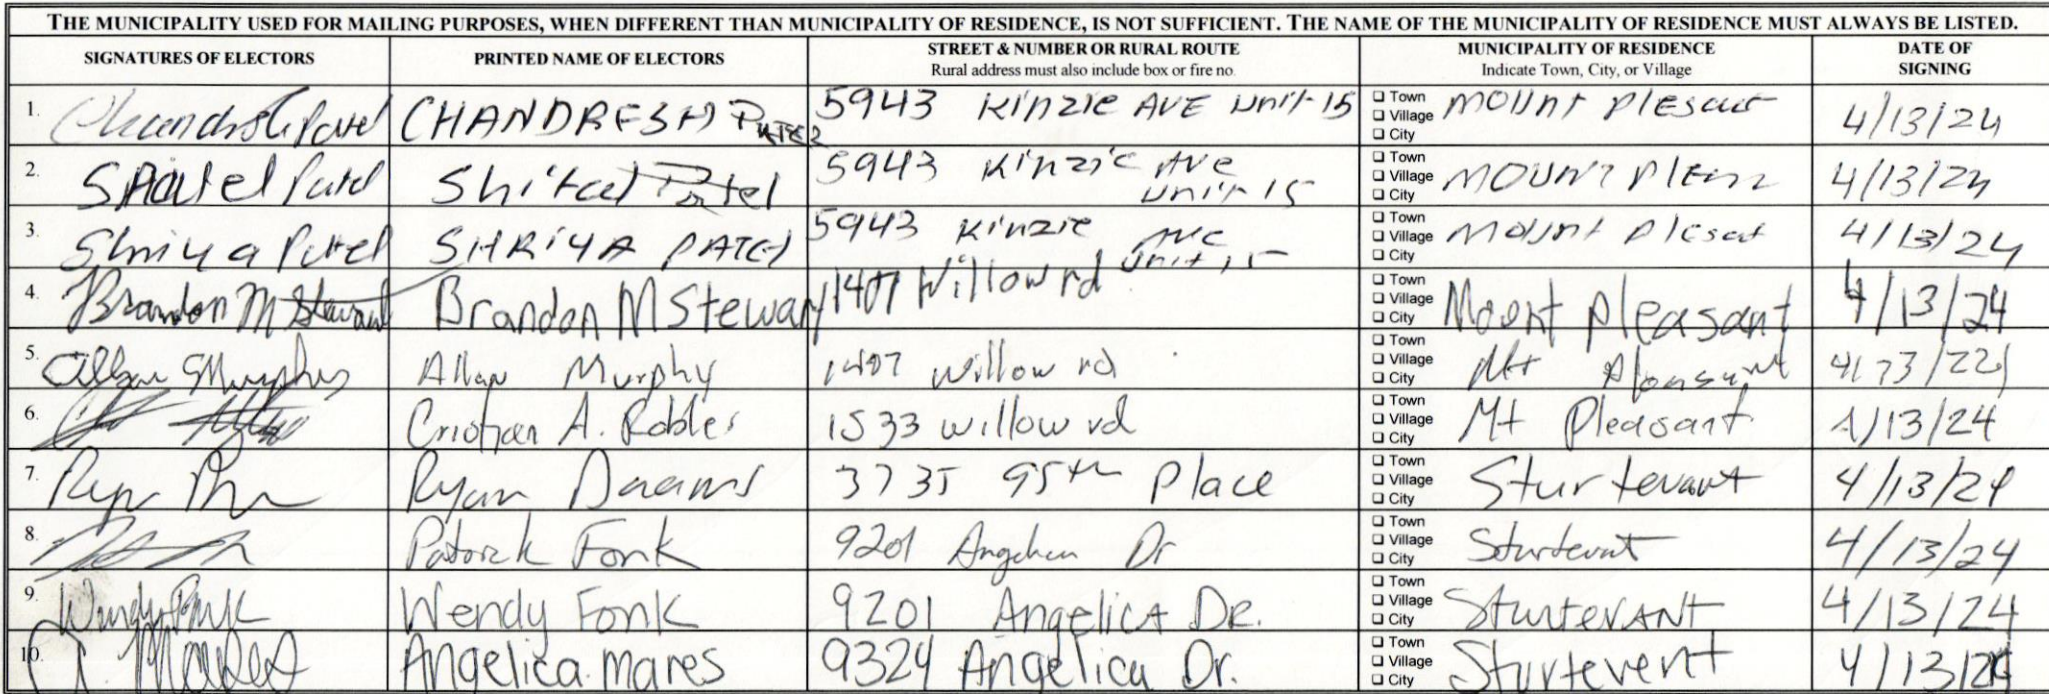 THE MUNICIPALITY USED FOR MAILING PURPOSES, WHEN DIFFERENT THAN MUNICIPALITY OF RESIDENCE, IS NOT SUFFICIENT. THE NAME OF THE MUNICIPALITY OF RESIDENCE MUST ALWAYS BE LISTED.
SIGNATURES OF ELECTORS PRINTED NAME OF ELECTORS STREET & NUMBER OR RURAL ROUTE MUNICIPALITY OF RESIDENCE DATE OF
Rural address must also include box or fire no. Indicate Town, City, or Village SIGNING
1. CHANDRESH PATEL 5943 Kinzie AVE Unit 15 Town Village City MOUNT Plesant 4/13/24
2. Patel Shital Patel 5943 Kinzie Ave Unit 15 Town Village City MOUNT 4/13/24
3. Shriya Patel SHRIYA PATEL 5943 Kinzie Ave Unit 15 Town Village City Mount Plesat 4/13/24
4. Brandon M Stewart Brandon M Stewart 1407 Willow rd Town Village City Mount Pleasant 4/13/24
5. Allan Murphy Allan Murphy 1407 Willow rd Town Village City Mt Pleasant
6. Cristian A. Robles 1533 willow rd Town Village City Mt Pleasant 4/13/24
7. Ryan Daams 3735 95th Place Town Village City Sturtevant 4/13/24
8. Patrick Fonk 9201 Dr Town Village City Sturtevant 4/13/24
9. Wendy Fonk Wendy Fonk 9201 Angelica DR. Town Village City STURTEVANT 4/13/24
10. Mares Angelica Mares 9324 Angelica Dr. Town Village City Sturtevent 4/13/24